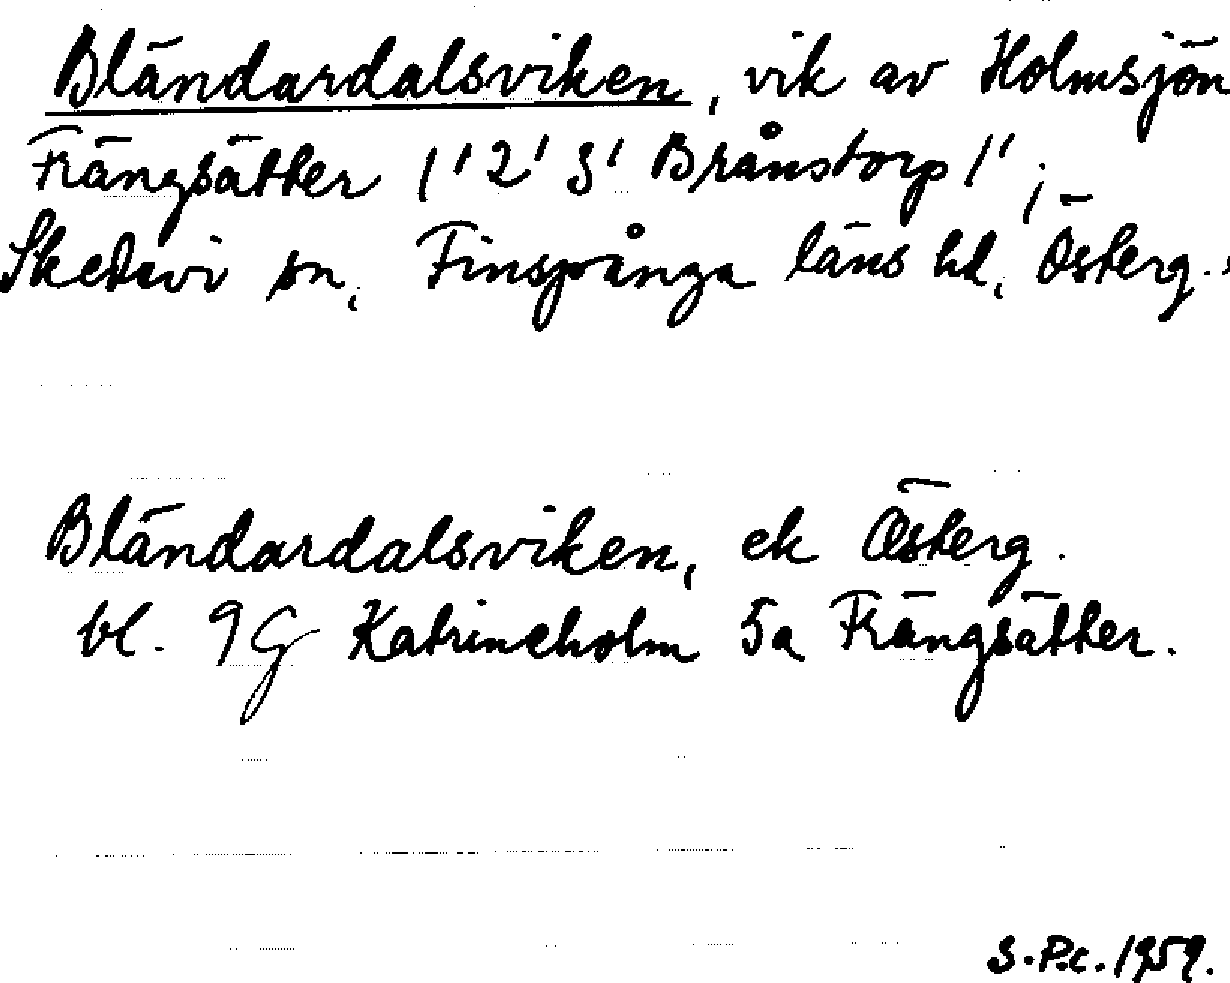 Bländardalsviken, vik av Holmsjön
Frängsätter /'2' S' Brånstorp/';
Skedevi sn, Finspånga läns hd, Österg.
Bländardalsviken, ek Österg.
bl. 9G Katrineholm 5a Frängsätter.
S.P.c. 1959.